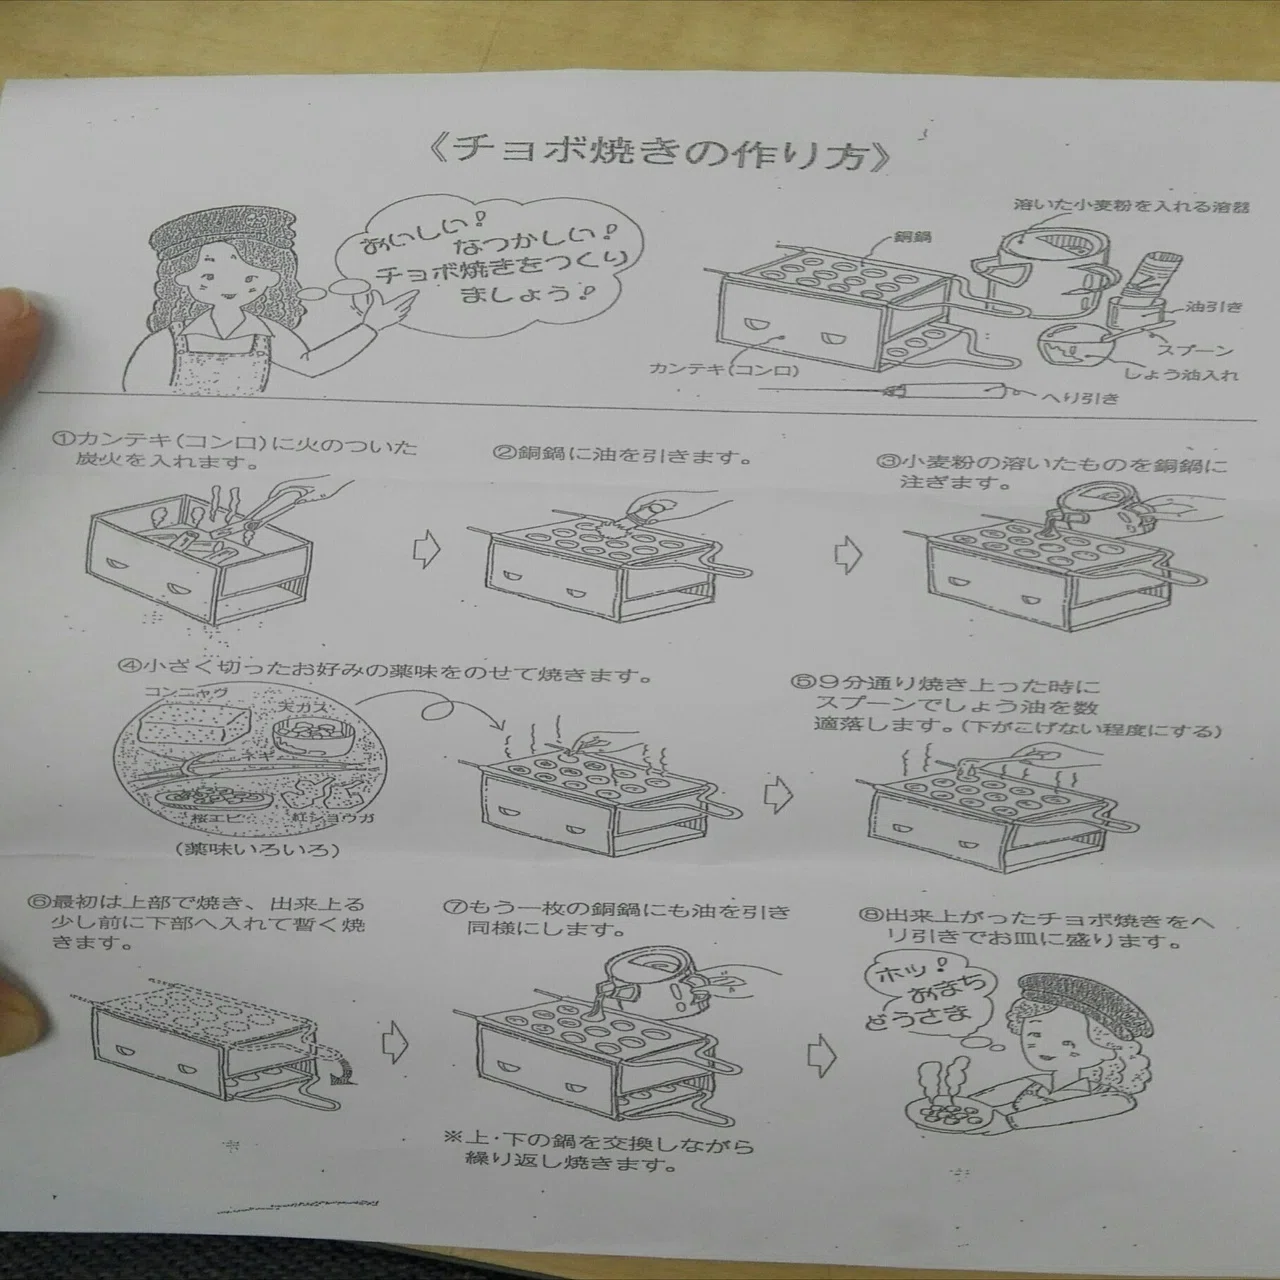 《チョボ焼きの作り方》
おいしい!
なつかしい!
チョボ焼きをつくり
ましょう!
溶いた小麦粉を入れる溶器
銅鍋
油引き
スプーン
しょう油入れ
カンテキ(コンロ)
へり引き
①カンテキ(コンロ)に火のついた
炭火を入れます。
②銅鍋に油を引きます。
③小麦粉の溶いたものを銅鍋に
注ぎます。
④小さく切ったお好みの薬味をのせて焼きます。
コンニャク
天ガス
ネギ
桜エビ
紅ショウガ
(薬味いろいろ)
⑤9分通り焼き上った時に
スプーンでしょう油を数
適落します。(下がこげない程度にする)
⑥最初は上部で焼き、出来上る
少し前に下部へ入れて暫く焼
きます。
⑦もう一枚の銅鍋にも油を引き
同様にします。
※上・下の鍋を交換しながら
繰り返し焼きます。
⑧出来上がったチョボ焼きをヘ
リ引きでお皿に盛ります。
ホッ!
おまち
どうさま